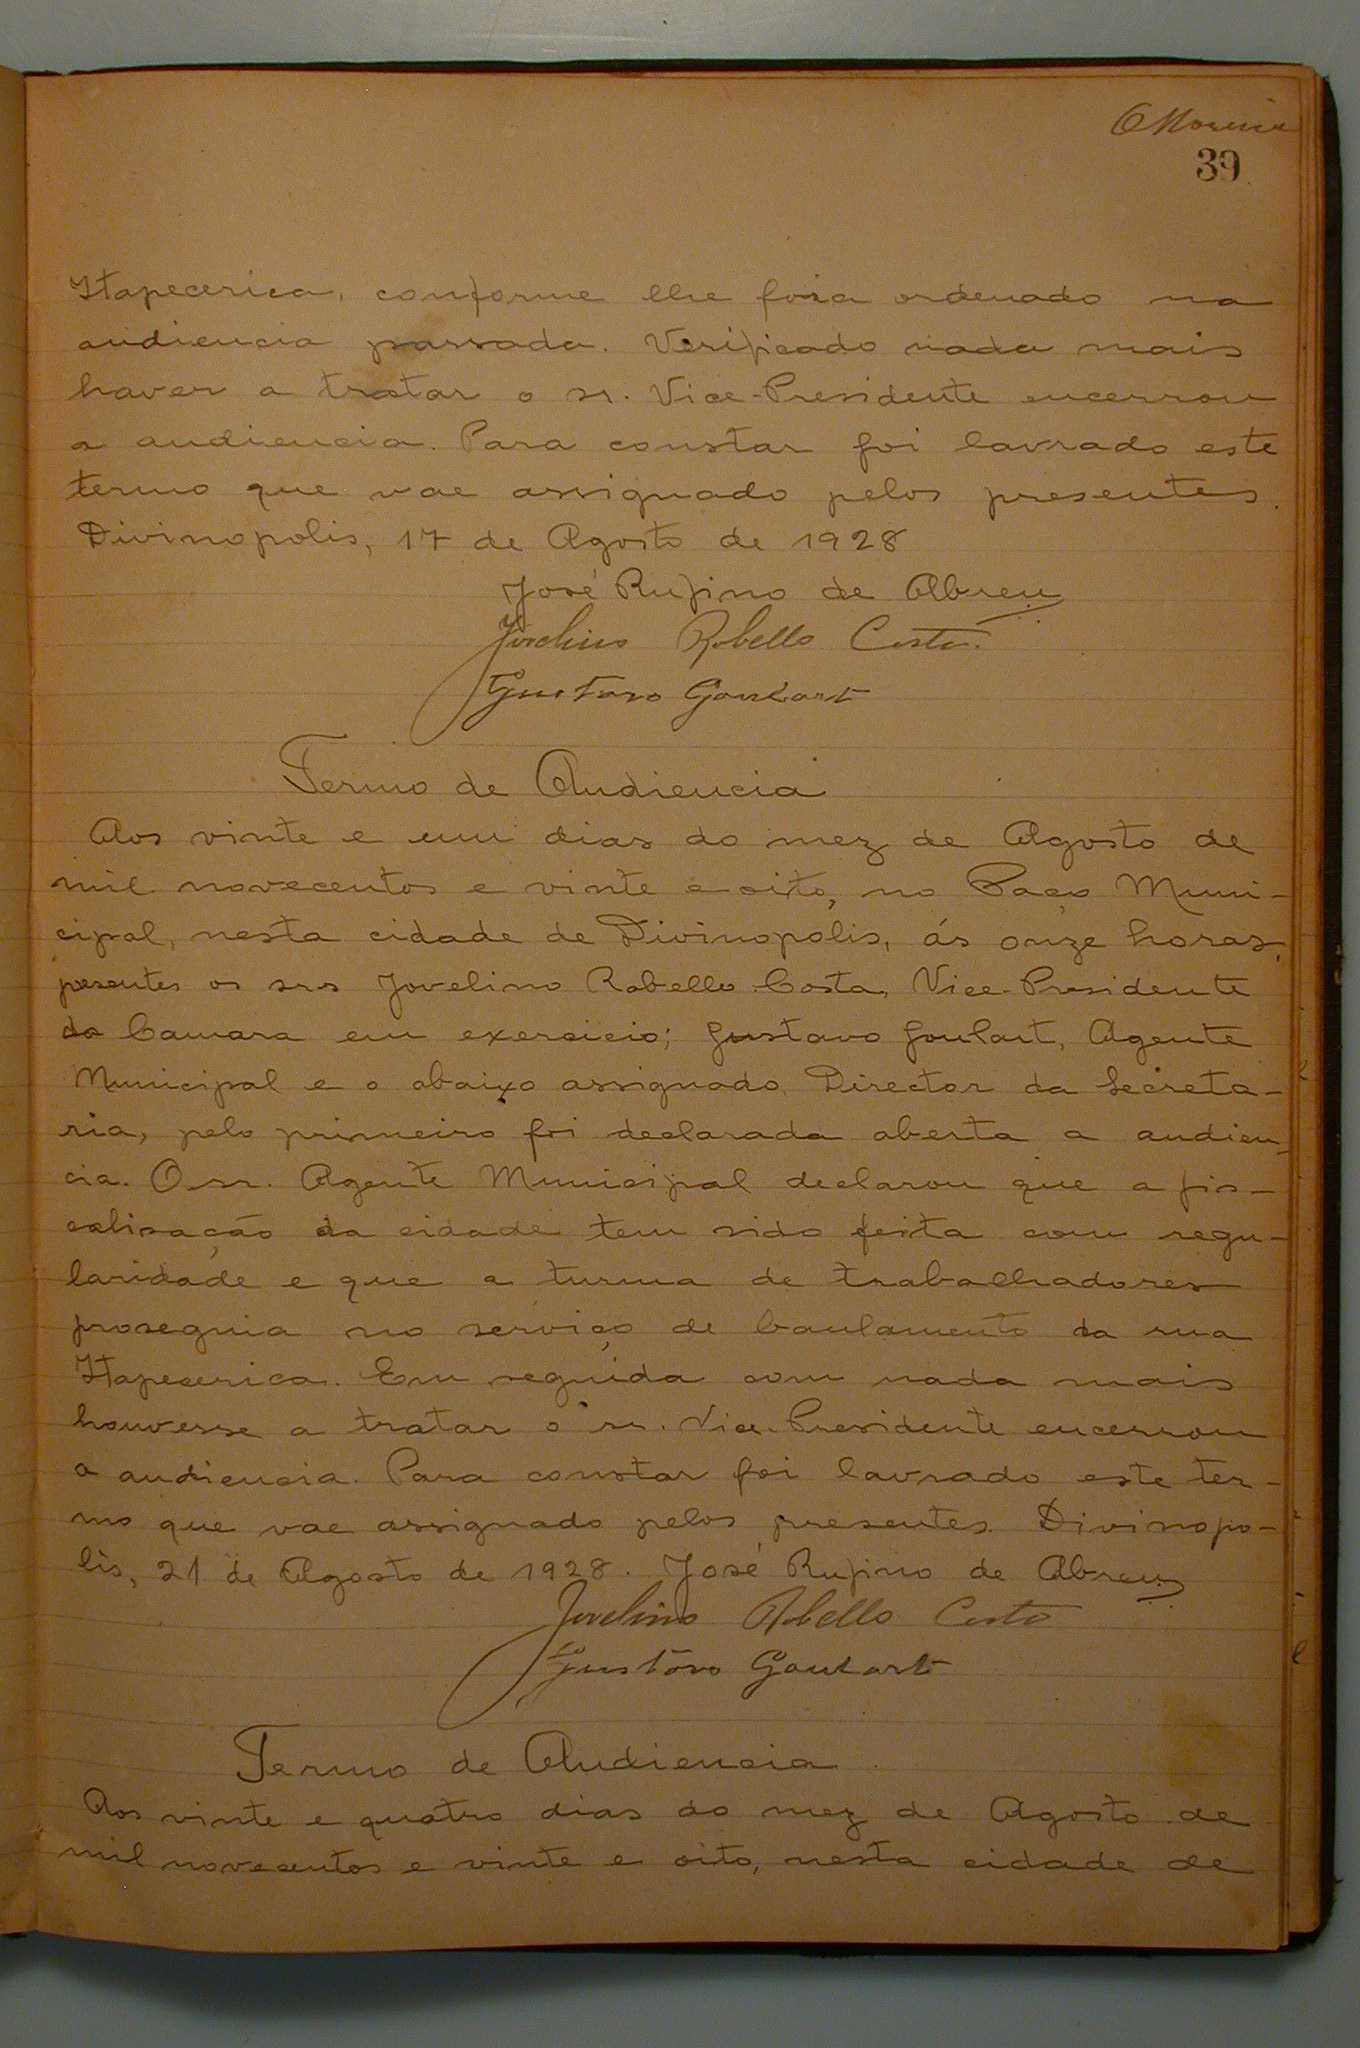 OMoreira
39
Itapecerica, conforme lhe fora ordenado na
audiencia passada. Verificado nada mais
haver a tratar o sr. Vice-Presidente encerrou
a audiencia. Para constar foi lavrado este
termo que vae assignado pelos presentes.
Divinopolis, 17 de Agosto de 1928
José Rufino de Abreu
Jovelino Rabello Costa.
Gustavo Goulart
Termo de Audiencia
Aos vinte e um dias do mez de Agosto de
mil novecentos e vinte e oito, no Paço Muni-
cipal, nesta cidade de Divinopolis, ás onze horas,
presentes os srs Jovelino Rabello Costa, Vice-Presidente
da Camara em exercicio; Gustavo Goulart, Agente
Municipal e o abaixo assignado, Director da Secreta-
ria, pelo primeiro foi declarada aberta a audien-
cia. O sr. Agente Municipal declarou que a fis-
calisação da cidade tem sido feita com regu-
laridade e que a turma de trabalhadores
proseguia no serviço de baulamento da rua
Itapecerica. Em seguida com nada mais
houvesse a tratar o sr. Vice-Presidente encerrou
a audiencia. Para constar foi lavrado este ter-
mo que vae assignado pelos presentes. Divinopo-
lis, 21 de Agosto de 1928. José Rufino de Abreu
Jovelino Rabello Costa
Gustavo Goulart
Termo de Audiencia
Aos vinte e quatro dias do mez de Agosto de
mil novecentos e vinte e oito, nesta cidade de